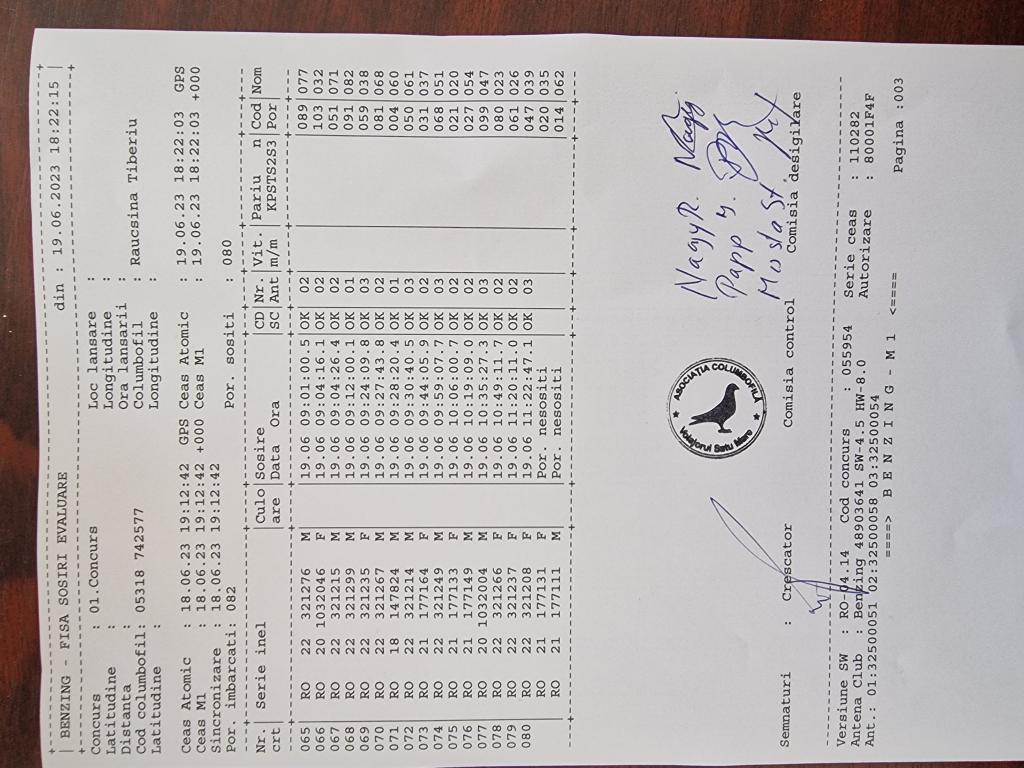 | BENZING - FISA SOSIRI EVALUARE din : 19.06.2023 18:22:15 |
Concurs : 01.Concurs Loc lansare :
Latitudine : Longitudine :
Distanta : Ora lansarii :
Cod columbofil: 05318 742577 Columbofil : Raucsina Tiberiu
Latitudine : Longitudine :
Ceas Atomic : 18.06.23 19:12:42 GPS Ceas Atomic : 19.06.23 18:22:03 GPS
Ceas M1 : 18.06.23 19:12:42 +000 Ceas M1 : 19.06.23 18:22:03 +000
Sincronizare : 18.06.23 19:12:42
Por. imbarcati: 082 Por. sositi : 080
Nr. | Serie inel |Culo|Sosire |CD|Nr.|Vit.|Pariu n |Cod|Nom
crt | |are |Data Ora |SC|Ant|m/m |KPSTS2S3|Por|
065 RO 22 321276 M 19.06 09:01:00.5 OK 02 089 077
066 RO 20 1032046 F 19.06 09:04:16.1 OK 02 103 032
067 RO 22 321215 M 19.06 09:04:26.4 OK 02 051 071
068 RO 22 321299 M 19.06 09:12:00.1 OK 01 091 082
069 RO 22 321235 F 19.06 09:24:09.8 OK 03 059 038
070 RO 22 321267 M 19.06 09:27:43.8 OK 02 081 068
071 RO 18 147824 M 19.06 09:28:20.4 OK 01 004 060
072 RO 22 321214 M 19.06 09:30:40.5 OK 03 050 061
073 RO 21 177164 F 19.06 09:44:05.9 OK 02 031 037
074 RO 22 321249 M 19.06 09:59:07.7 OK 03 068 051
075 RO 21 177133 F 19.06 10:06:00.7 OK 02 021 020
076 RO 21 177149 M 19.06 10:19:09.0 OK 02 027 054
077 RO 20 1032004 M 19.06 10:35:27.3 OK 03 099 047
078 RO 22 321266 F 19.06 10:49:11.7 OK 02 080 023
079 RO 22 321237 F 19.06 11:20:11.0 OK 02 061 026
080 RO 22 321208 F 19.06 11:22:47.1 OK 03 047 039
RO 21 177131 F Por. nesositi 020 035
RO 21 177111 M Por. nesositi 014 062
Nagy R.
Papp Y.
ASOCIAȚIA COLUMBOFILĂ
Voiajorul Satu Mare
Semnaturi : Crescator Comisia control Comisia desigilare
Versiune SW : RO-04.14 Cod concurs : 055954 Serie ceas : 110282
Antena Club : Benzing 48903641 SW-4.5 HW-8.0 Autorizare : 80001F4F
Ant.: 01:32500051 02:32500058 03:32500054
====> B E N Z I N G - M 1 <==== Pagina :003